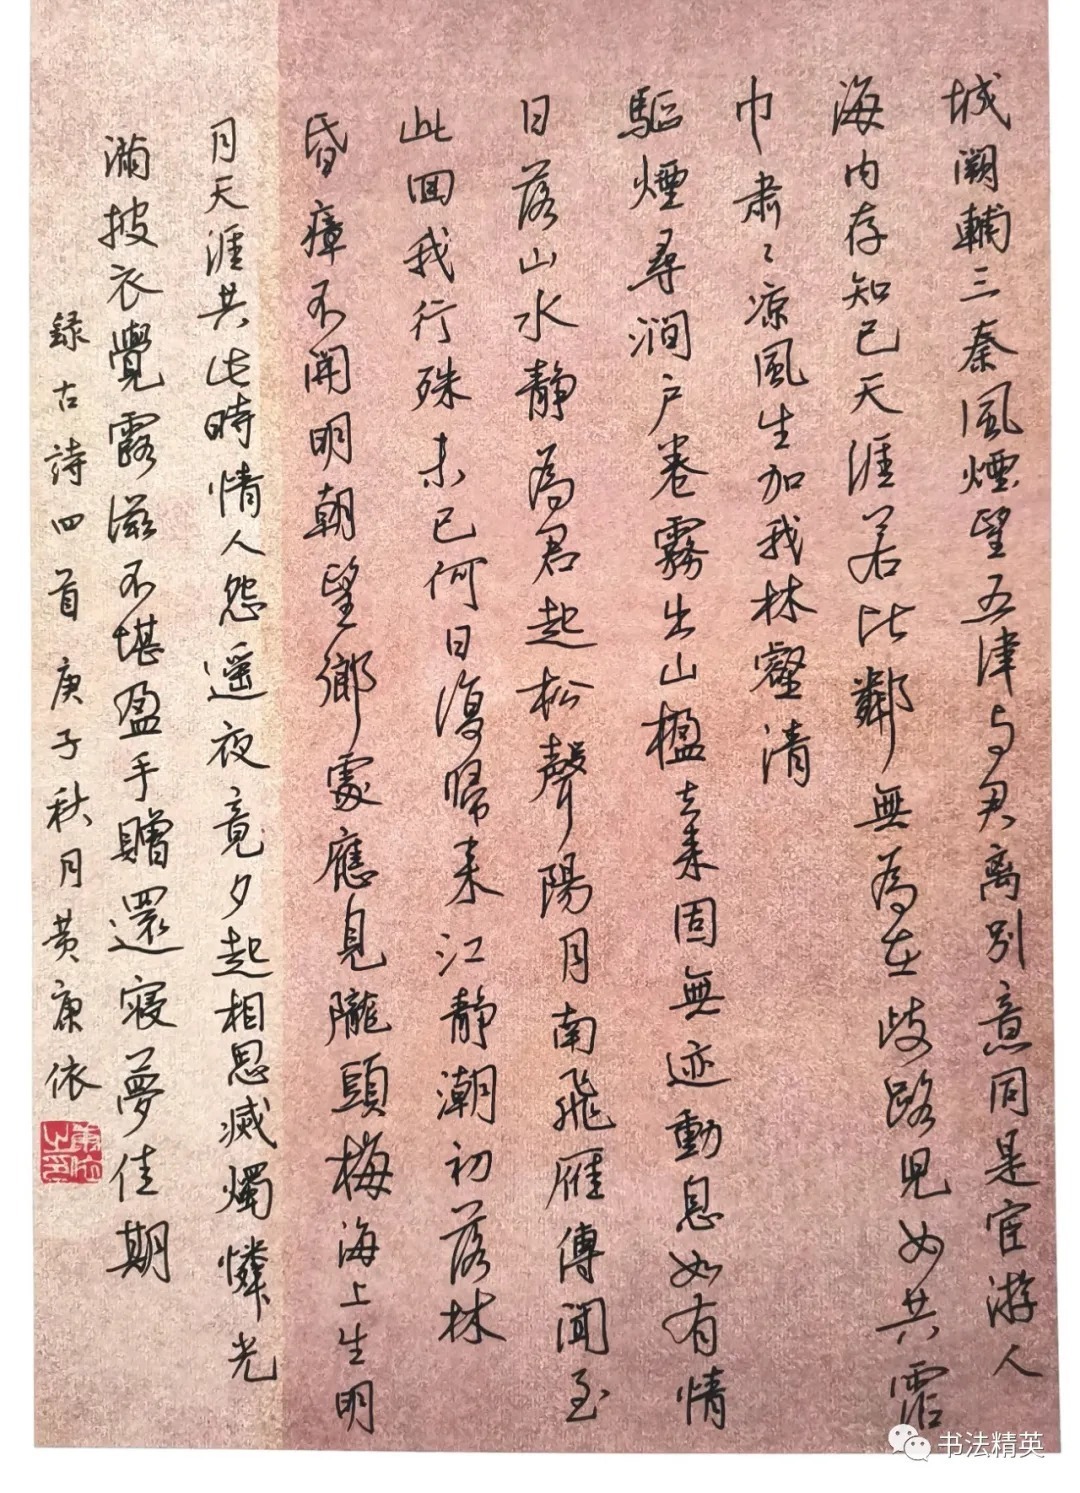 城阙輔三秦風煙望五津与君离别意同是宦游人
海内存知己天涯若比鄰無為在歧路兒女共霑
巾肃々凉風生加我林壑清
驅煙尋澗户卷霧出山楹去来固無迹動息如有情
日落山水静為君起松聲陽月南飛雁傳聞至
此回我行殊未已何日復歸来江静潮初落林
昏瘴不開明朝望鄉處應見隴頭梅海上生明
月天涯共此時情人怨遥夜竟夕起相思滅燭憐光
滿披衣覺露滋不堪盈手贈還寝夢佳期
録古詩四首 庚子秋月黄康依
康依之印
书法精英